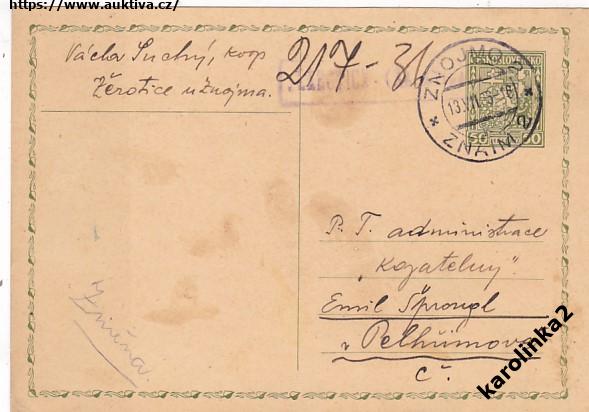 https://www.auktiva.cz/
Vácha Suchý, koop
Žerotice u Znojma.
217-31
ZNOJMO 2
ČESKOSLOVENSKO
ZNAIM 2
50 50
P. T. administrace
"Kozatelny".
Emil Šprongl
v Pelhřimově
Č.
karolinka2